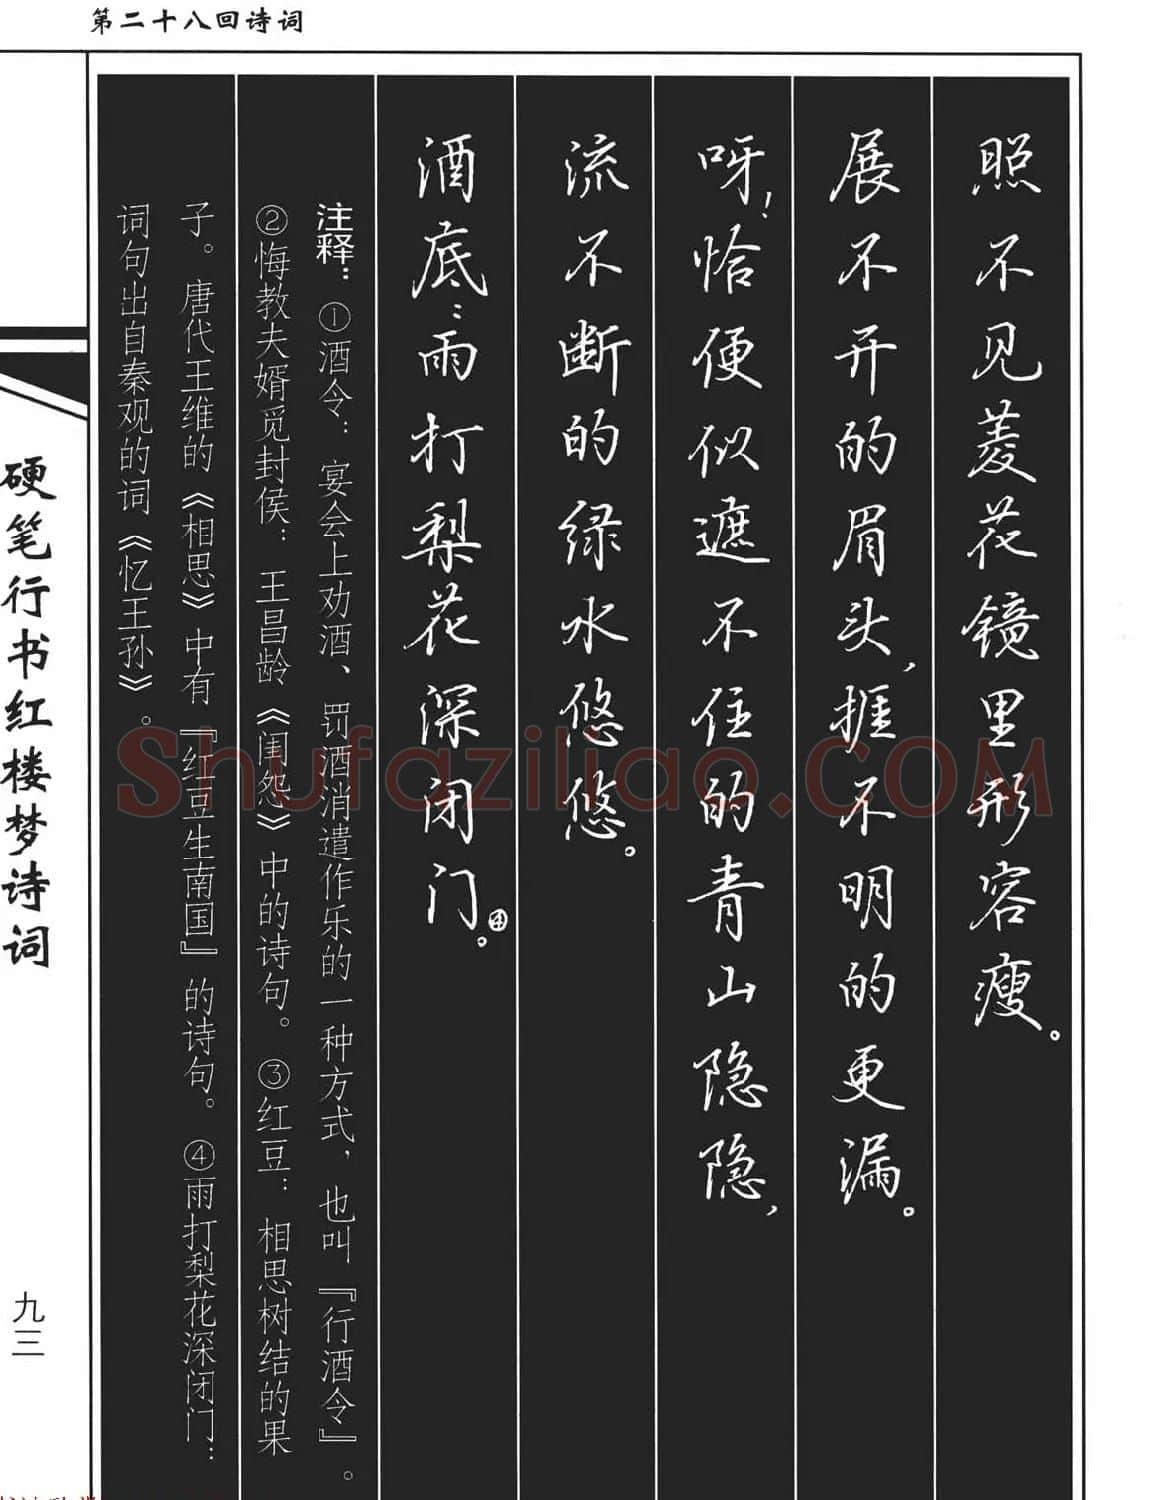 第二十八回诗词
照不见菱花镜里形容瘦。
展不开的眉头，捱不明的更漏。
呀！恰便似遮不住的青山隐隐，
流不断的绿水悠悠。
酒底：雨打梨花深闭门。④
注释：①酒令：宴会上劝酒、罚酒消遣作乐的一种方式，也叫『行酒令』。
②悔教夫婿觅封侯：王昌龄《闺怨》中的诗句。③红豆：相思树结的果
子。唐代王维的《相思》中有『红豆生南国』的诗句。④雨打梨花深闭门：
词句出自秦观的词《忆王孙》。
硬笔行书红楼梦诗词
九三
Shufaziliao.COM